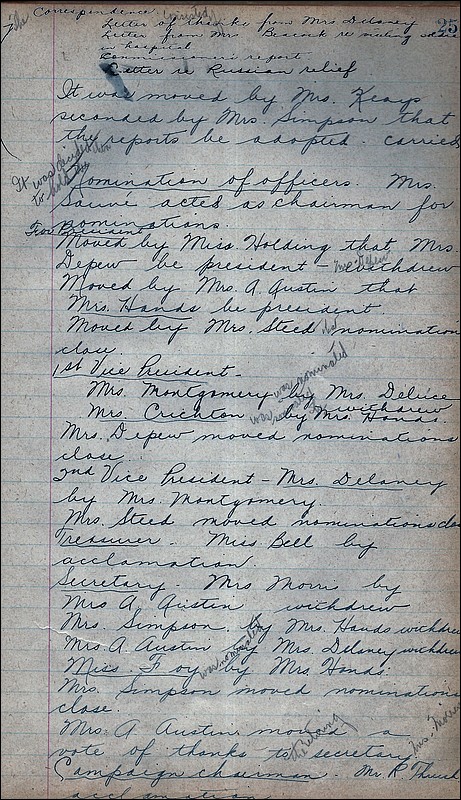 25
Correspondence.
Letter of thanks from Mrs Delaney
Letter from Mrs Beacock re visiting
in hospital
Commissioners report
Letter re Russian relief
It was moved by Mrs. Keays
seconded by Mrs. Simpson that
the reports be adopted. carried
It was decided
to hold the
Nomination of officers. Mrs.
Sauvé acted as chairman for
nominations.
For President
Moved by Miss Holding that Mrs.
Depew be president - withdrew
Mrs Depew
Moved by Mrs. A. Austin that
Mrs. Hands be president.
Moved by Mrs. Steed nomination
close.
1st Vice President -
was nominated
Mrs. Montgomery by Mrs. Deluce
withdrew
Mrs. Crichton by Mrs. Hands.
Mrs. Depew moved nominations
close.
2nd Vice President - Mrs. Delaney
by Mrs. Montgomery.
Mrs. Steed moved nominations clo
Treasurer. Miss Bell by
acclamation.
Secretary. Mrs Morri by
Mrs A. Austin withdrew
Mrs. Simpson. by Mrs. Hands withdrew
Mrs. A. Austin by Mrs. Delaney withdrew
was nominated
Miss. Foy by Mrs. Hands.
Mrs. Simpson moved nominations
close.
Mrs. A Austin moved a
vote of thanks to secretary
the retiring
Campaign chairman - Mr. R.
acclamation